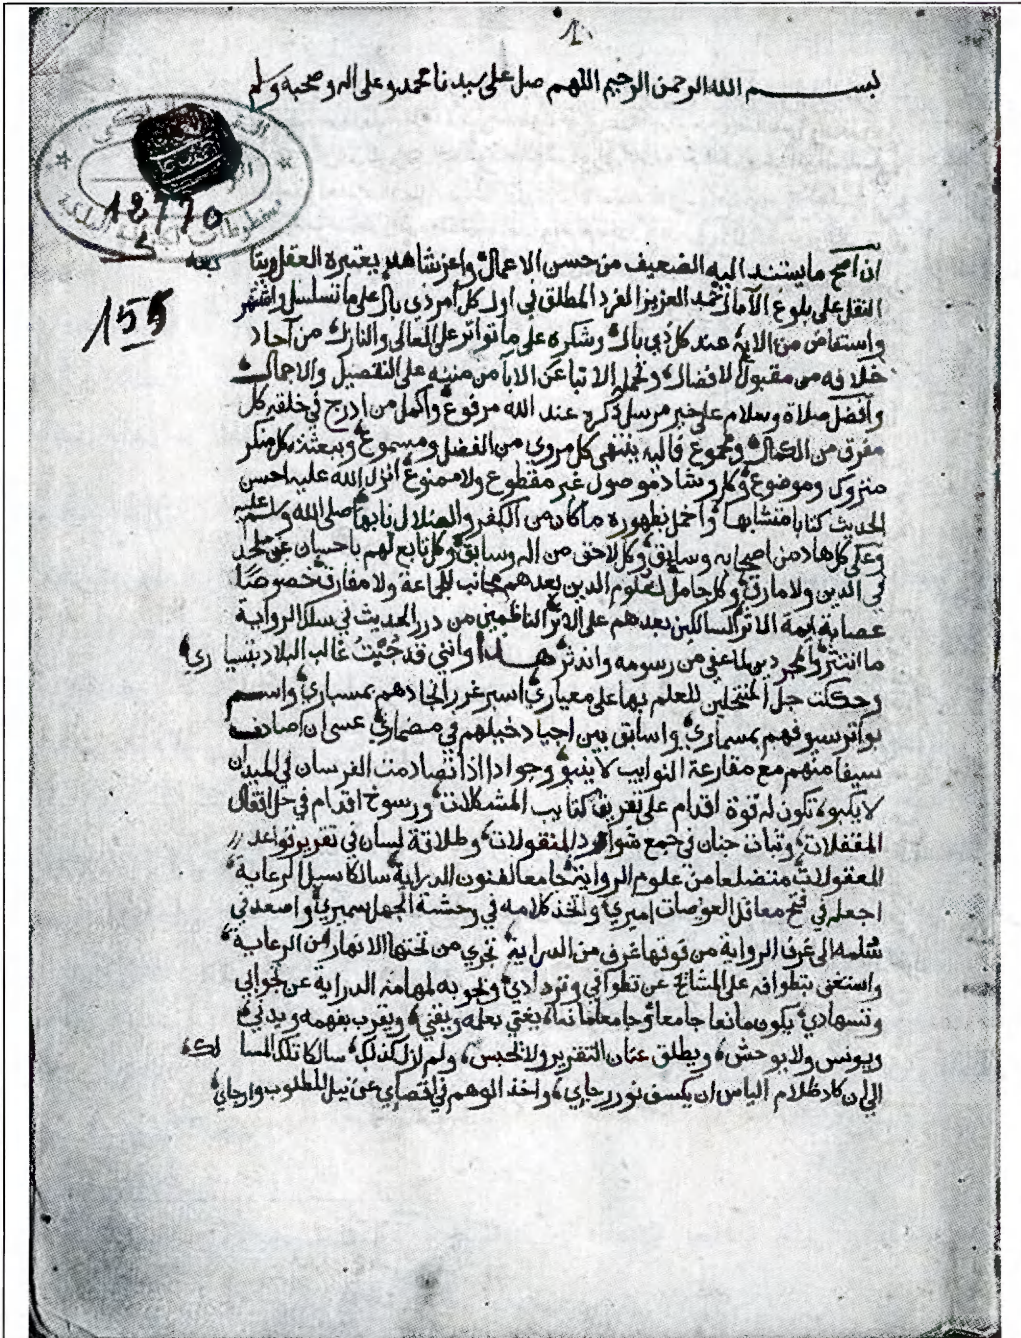 1
بســـم الله الرحمن الرحيم اللهم صل على سيدنا محمد وعلى اله وصحبه وسلم
12770
155
ان اصح ما يستند اليه الضعيف من حسن الاعمال واعز شاهد يعتبره العقل ويتابعه
النقل على بلوغ الآمال حمد العزيز الفرد المطلق في اول كل امر ذي بال على ما تسلسل واشتهر
واستفاض من الائه عند كل ذي بال وشكره على ما تواتر على المعالي والنازل من آحاد
خلافه من مقبول الافضال وتحمله الاتباع عن الابا من مننه على التفصيل والاجمال
وافضل صلاة وسلام على خير مرسل ذكره عند الله مرفوع واكمل من ادرج في خلقه كل
مفرق من الكمال ومجموع فاليه ينتهى كل مروي من الفضل ومسموع وببعثته كل منكر
متروك وموضوع وكل وشاد موصول غير مقطوع ولا ممنوع انزل الله عليه احسن
الحديث كتابا متشابها واخمل بظهوره ما كان من الكفر والضلال نابها صلى الله وسلم عليه
وعلى كل هاد من اصحابه وسابق وكل لاحق من اله وسابق وكل تابع لهم باحسان غير ملحد
في الدين ولا مارق وكل حامل لعلوم الدين بعدهم مجانب للجماعة ولا مفارق خصوصا
عصابة ايمة الاثر السالكين بعدهم على الاثر الناظمين من درر الحديث في سلك الرواية
ما انتثر والمجردين لما عفي من رسومه واندثر هـــذا وانني قد جُبْتُ غالب البلاد بتسياري
وحككت جل المنتحلين للعلم بها على معياري اسبر غور انجادهم بمسباري واسم
بواتر سيوفهم بمسماري واسابق بين اجياد خيلهم في مضماري عسى ان اصادف
سيفا منهم مع مقارعة النوايب لا ينبو وجوادا اذا تصادمت الفرسان في الميدان
لا يكبو تكون له قوة اقدام على تفريق كتايب المشكلات ورسوخ اقدام في حل اقفال
المقفلات وثبات جنان في جمع شوارد المنقولات وطلاقة لسان في تقرير قواعد
المعقولات متضلعا من علوم الرواية جامعا لفنون الدراية سالكا سبيل الرعاية
اجعله في فتح معاقل العويصات اميري واتخذ كلامه في وحشة الجهل سميري واصعد في
سلمه الى غرف الرواية من فوقها غرف من الدراية تجري من تحتها الانهار من الرعاية
واستغنى بتطوافه على المشائخ عن تطوافي وتردادي وبجوبه لمهامه الدراية عن تجوابي
وتسهادي يكون مانعا جامعا وجامعا مانعا يغني بعلمه ويقني ويقرب بفهمه ويدني
ويونس ولا يوحش ويطلق عنان التقرير ولا يحبس ولم ازل كذلك سالكا تلك المسالك
الى ان كاد ظلام الياس ان يكسف نور رجاي واخذ الوهم في اقصاي عن نيل المطلوب وارجاي